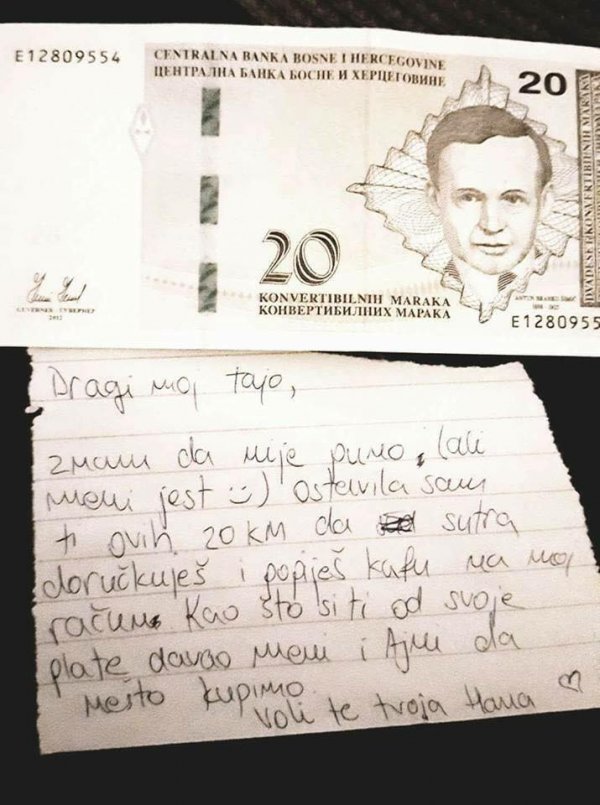 E12809554
CENTRALNA BANKA BOSNE I HERCEGOVINE
ЦЕНТРАЛНА БАНКА БОСНЕ И ХЕРЦЕГОВИНЕ
20
20
KONVERTIBILNIH MARAKA
КОНВЕРТИБИЛНИХ МАРАКА
GUVERNER - ГУВЕРНЕР
2012
E1280955
Dragi moj tajo,
znam da nije puno, (ali
meni jest :) Ostavila sam
ti ovih 20 KM da sutra
doručkuješ i popiješ kafu na moj
račun. Kao što si ti od svoje
plate davao meni i Ajni da
nešto kupimo.
Voli te tvoja Hana ♡